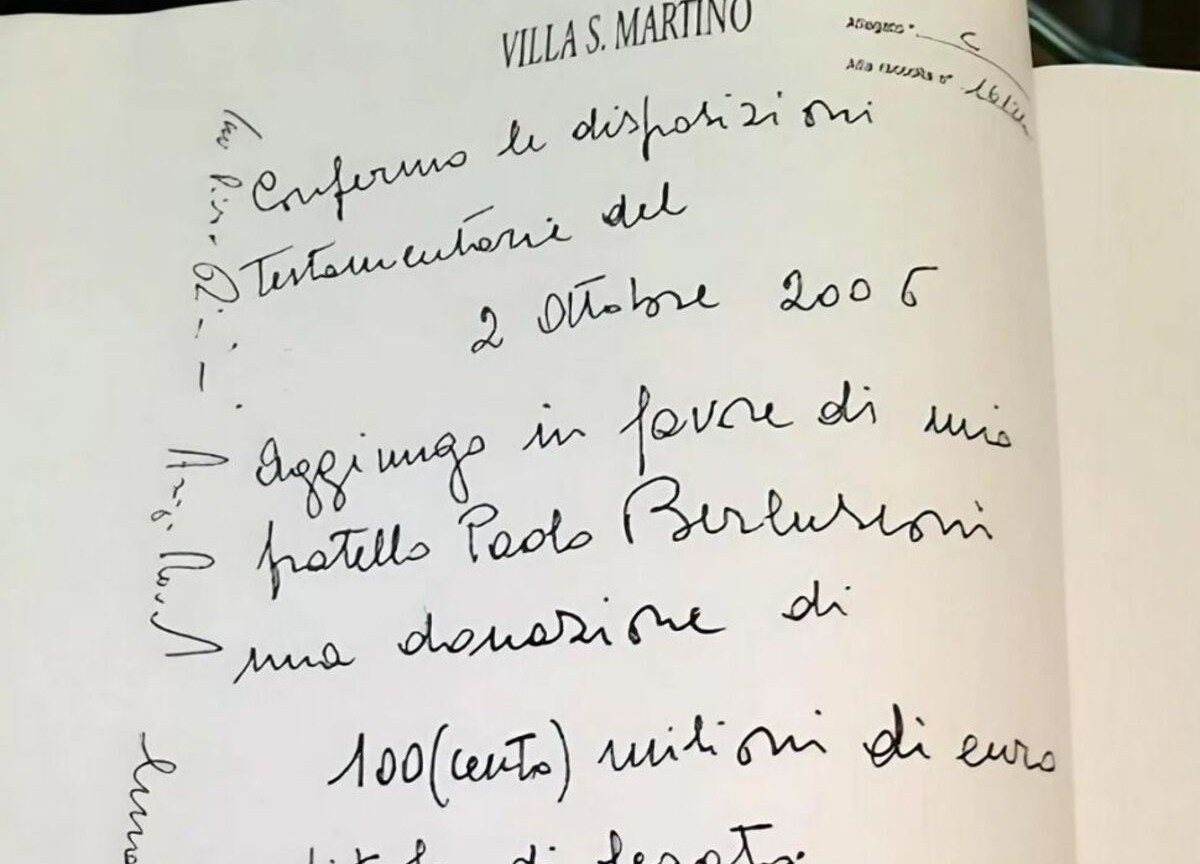 VILLA S. MARTINO
Allegato "C
Confermo le disposizioni
Testamentarie del
2 Ottobre 2006
Aggiungo in favore di mio
fratello Paolo Berlusconi
una donazione di
100 (cento) milioni di euro